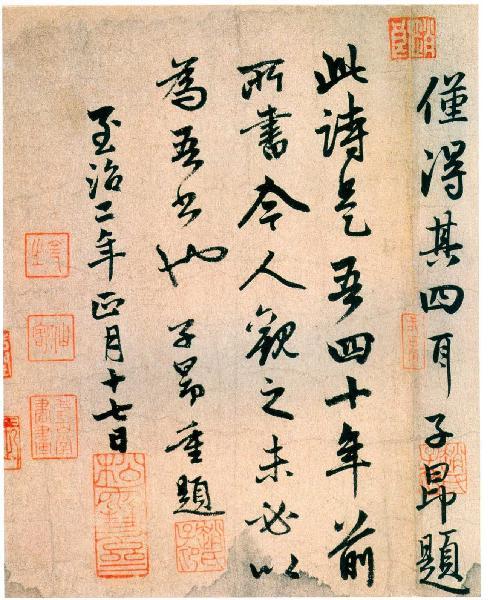 僅得其四耳子昂題
此詩是吾四十年前
所書今人觀之未必以
為吾書也子昂重題
至治二年正月十七日
松雪齋